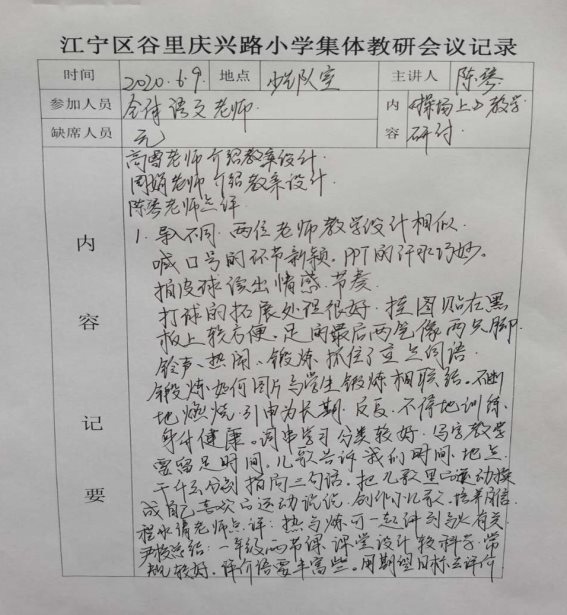 江宁区谷里庆兴路小学集体教研会议记录
时间 2020.6.9. 地点 少先队室 主讲人 陈琴
参加人员 全体语文老师. 内容 《操场上》教学研讨
缺席人员 无
内容记要
高雪老师介绍教案设计.
周娟老师介绍教案设计.
陈琴老师点评
1. 导入不同. 两位老师教学设计相似.
喊口号的环节新颖. PPT的 巧妙.
拍皮球读出情感.节奏
打球的拓展处理很好. 挂图贴在黑
板上较方便. 足的最后两笔像两只脚.
铃声、热闹、锻炼.抓住了重点词语.
锻炼.如何图片与学生锻炼相联结。不断
地燃烧.引申为长期.反复.不停地训练.
身体健康。词串学习分类较好.写字教学
要留足时间.儿歌告诉我们时间.地点.
干什么分别指向三句话.把儿歌里运动换
成自己喜欢的运动说说.创作小儿歌.培养自信
老师点评:热与炼可一起讲到与火有关
总结:一年级两节课.课堂设计较科学.常
规较好.评价语要丰富些。用期望目标去评价